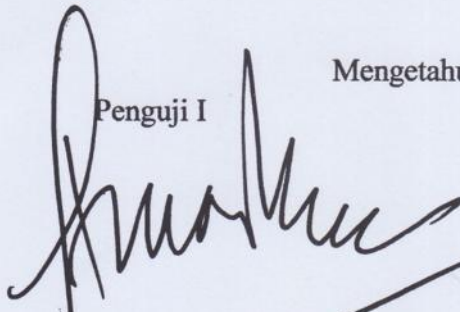 Mengetahu
Penguji I